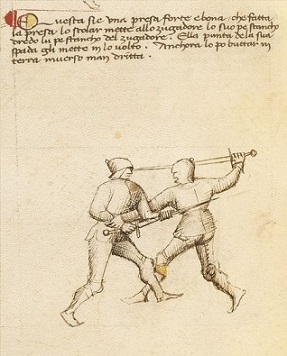 Questa sie una presa forte e bona, che fatta
la presa lo scolar mette allo zugadore lo suo pe stancho
dredo lu pe stancho del zugadore. Ella punta de la sua
spada gli motte in lo volto. Anchora lo po buttar in
terra inverso man dritta.